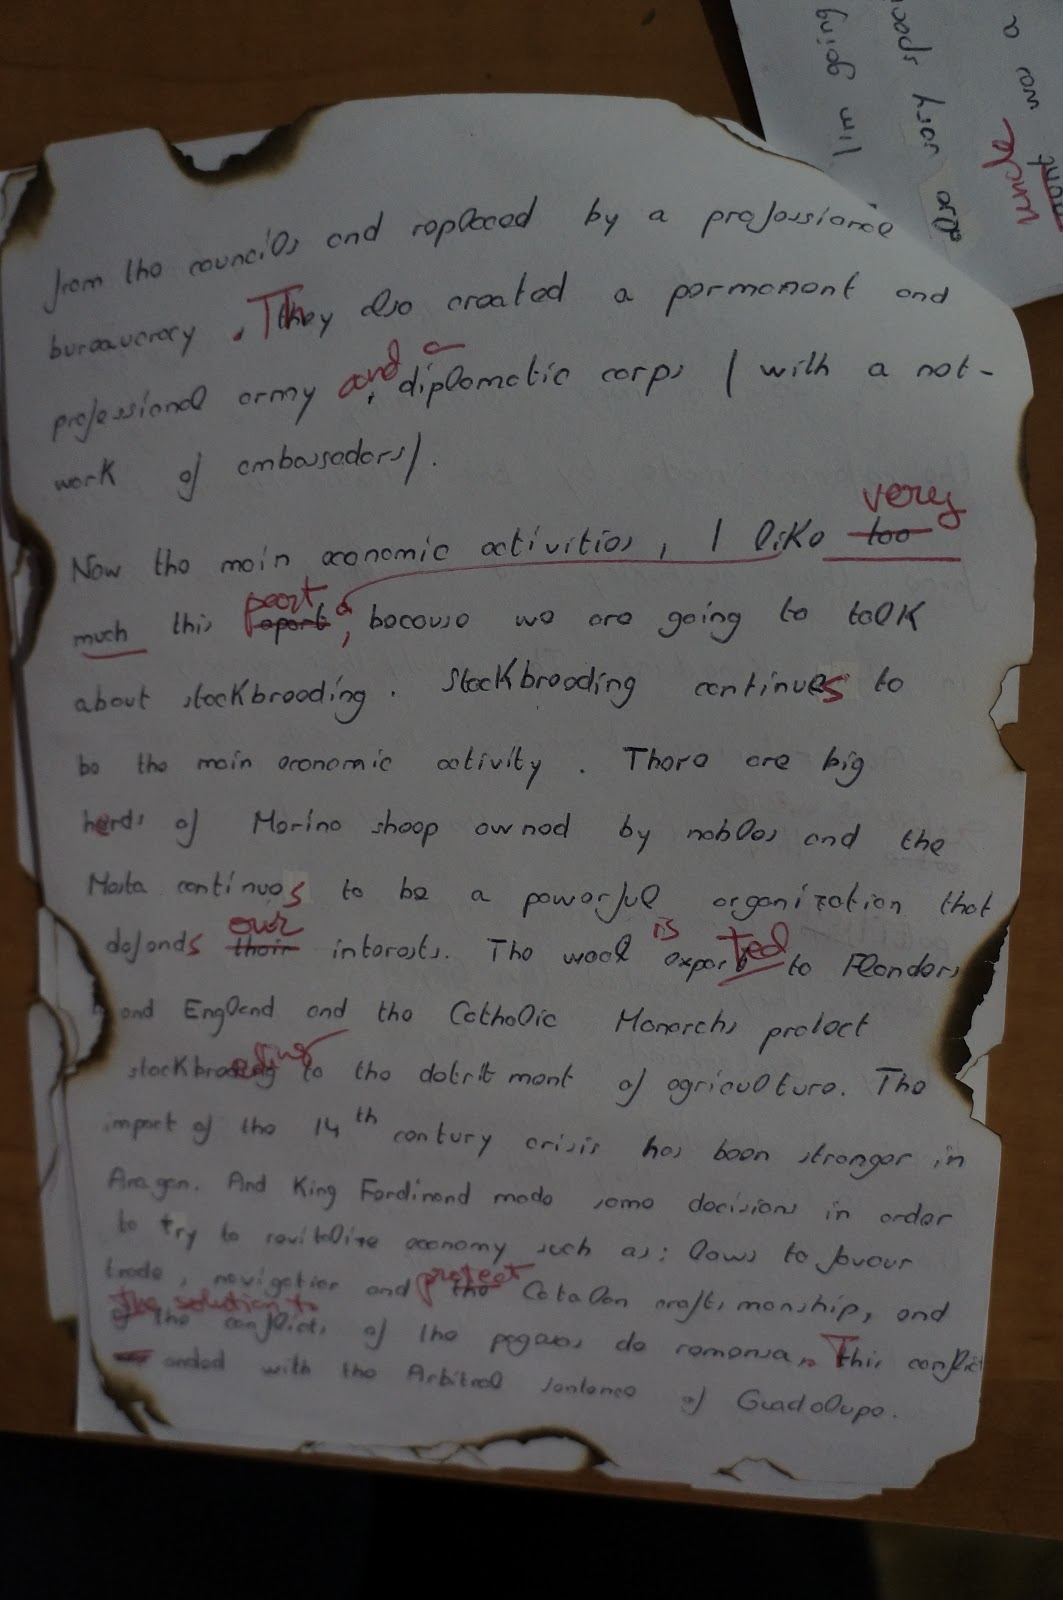 from the councils and replaced by a professional
bureaucracy . They also created a permanent and
professional army and a diplomatic corps / with a net-
work of embassadors/.
Now the main economic activities, I like too very
much this apart part, because we are going to talk
about stockbreeding. Stockbreeding continues to
be the main economic activity. There are big
herds of Merino sheep owned by nobles and the
Mesta continues to be a powerful organization that
defends their our interests. The wool is exported to Flanders
and England and the Catholic Monarchs protect
stockbreeding to the detriment of agriculture. The
import of the 14th century crisis has been stronger in
Aragon. And King Ferdinand made some decisions in order
to try to revitalize economy such as: laws to favour
trade, navigation and the protect Catalan craftsmanship, and
the solution to the conflicts of the pageses de remensa. This conflict
ended with the Arbitral sentence of Guadalupe.
I'm going
are very spec
aunt uncle
was a